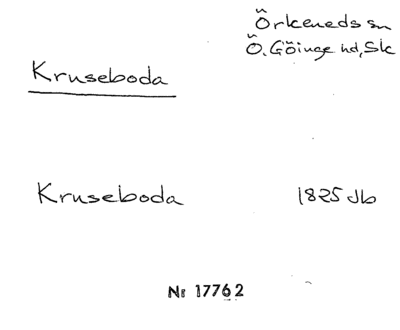 Örkeneds sn
Ö. Göinge hd, Sk
Kruseboda
Kruseboda 1825 Jb
Nr 17762